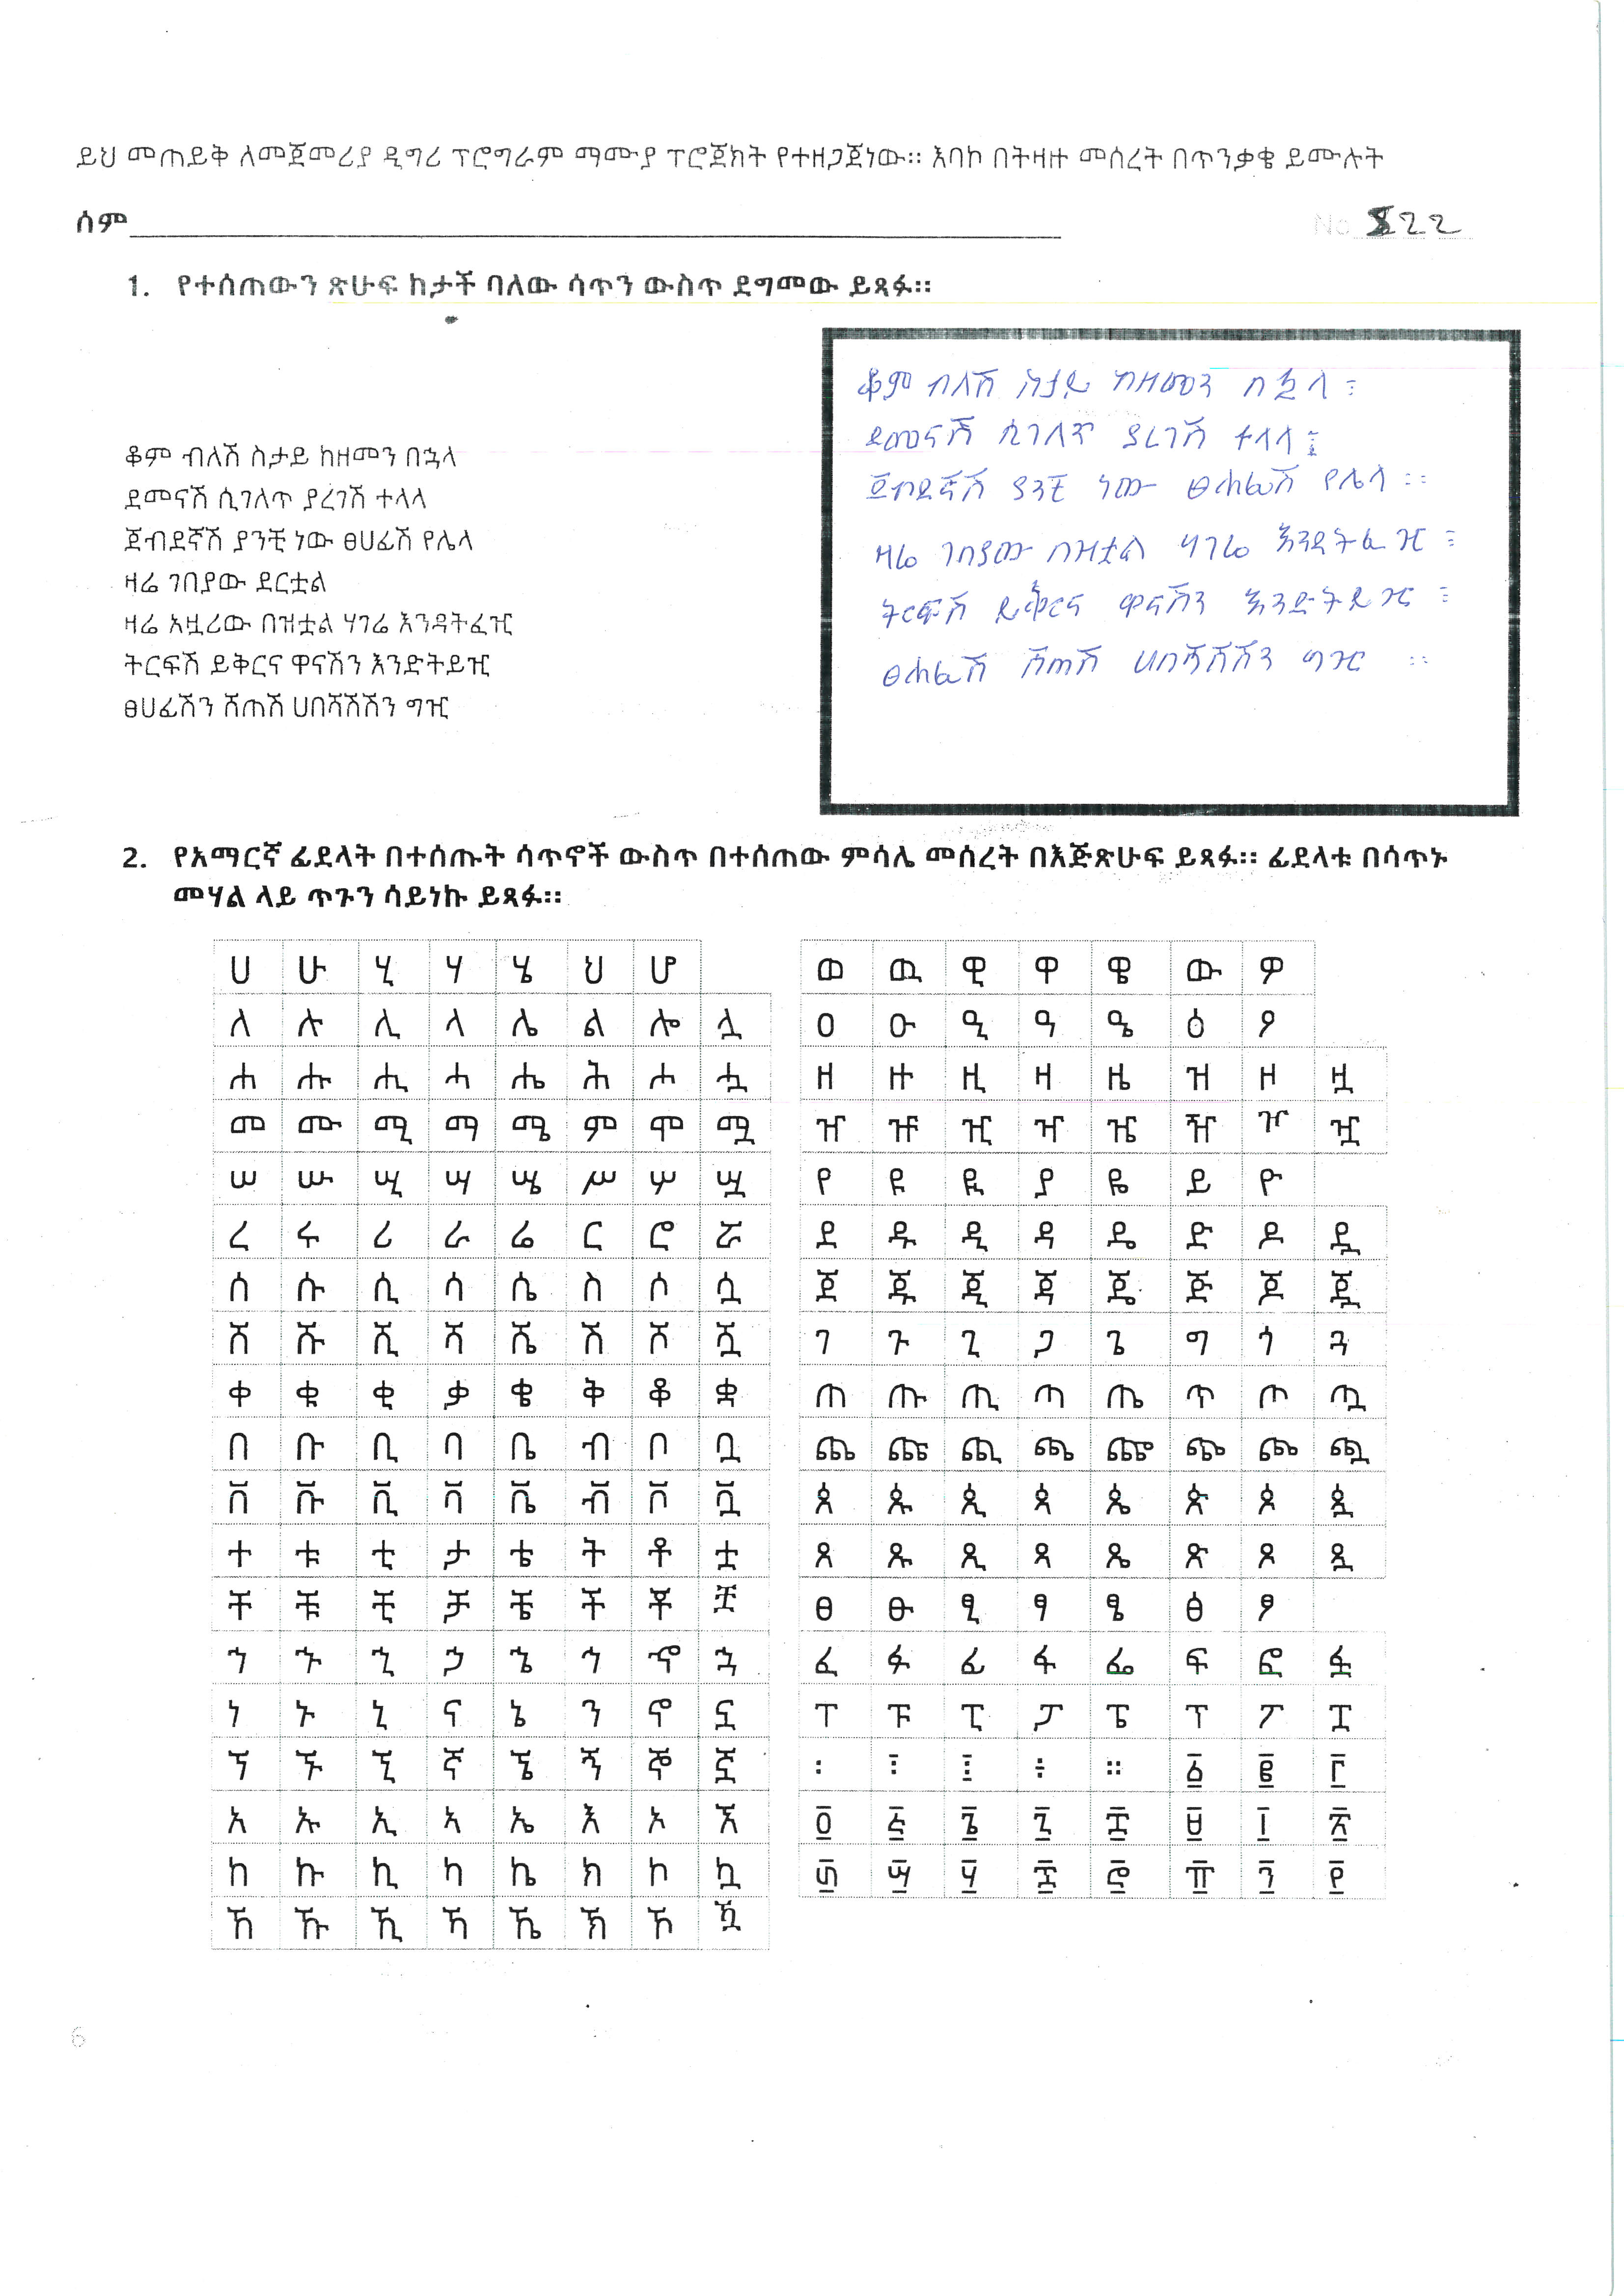 ይህ መጠይቅ ለመጀመሪያ ዲግሪ ፕሮግራም ማሙያ ፕሮጀክት የተዘጋጀነው። እባኮ በትዛዙ መሰረት በጥንቃቄ ይሙሉት
ሰም
No 822
1. የተሰጠውን ጽሁፍ ከታች ባለው ሳጥን ውስጥ ደግመው ይጻፉ።
ቆም ብለሽ ስታይ ከዘመን በኋላ
ደመናሽ ሲገለጥ ያረገሽ ተላላ
ጀብደኛሽ ያንቺ ነው ፀሀፊሽ የሌላ
ዛሬ ገበያው ደርቷል
ዛሬ አዟሪው በዝቷል ሃገሬ እንዳትፈዢ
ትርፍሽ ይቅርና ዋናሽን እንድትይዢ
ፀሀፊሽን ሸጠሽ ሀበሻሽሽን ግዢ
ቆም ብለሽ ስታይ ከዘመን በኋላ ፣
ደመናሽ ሲገለጥ ያረገሽ ተላላ ፤
ጀብደኛሽ ያንቺ ነው ፀሐፊሽ የሌላ ።
ዛሬ ገበያው በዝቷል ሃገሬ እንዳትፈዢ ፣
ትርፍሽ ይቅርና ዋናሽን እንድትይዢ ፣
ፀሐፊሽ ሸጠሽ ሀበሻሽሽን ግዢ ።
2. የአማርኛ ፊደላት በተሰጡት ሳጥኖች ውስጥ በተሰጠው ምሳሌ መሰረት በእጅጽሁፍ ይጻፉ። ፊደላቱ በሳጥኑ
መሃል ላይ ጥጉን ሳይነኩ ይጻፉ።
ሀ ሁ ሂ ሃ ሄ ህ ሆ
ለ ሉ ሊ ላ ሌ ል ሎ ሏ
ሐ ሑ ሒ ሓ ሔ ሕ ሖ ሗ
መ ሙ ሚ ማ ሜ ም ሞ ሟ
ሠ ሡ ሢ ሣ ሤ ሥ ሦ ሧ
ረ ሩ ሪ ራ ሬ ር ሮ ሯ
ሰ ሱ ሲ ሳ ሴ ስ ሶ ሷ
ሸ ሹ ሺ ሻ ሼ ሽ ሾ ሿ
ቀ ቁ ቂ ቃ ቄ ቅ ቆ ቋ
በ ቡ ቢ ባ ቤ ብ ቦ ቧ
ቨ ቩ ቪ ቫ ቬ ቭ ቮ ቯ
ተ ቱ ቲ ታ ቴ ት ቶ ቷ
ቸ ቹ ቺ ቻ ቼ ች ቾ ቿ
ኀ ኁ ኂ ኃ ኄ ኅ ኆ ኋ
ነ ኑ ኒ ና ኔ ን ኖ ኗ
ኘ ኙ ኚ ኛ ኜ ኝ ኞ ኟ
አ ኡ ኢ ኣ ኤ እ ኦ ኧ
ከ ኩ ኪ ካ ኬ ክ ኮ ኳ
ኸ ኹ ኺ ኻ ኼ ኽ ኾ ዃ
ወ ዉ ዊ ዋ ዌ ው ዎ
ዐ ዑ ዒ ዓ ዔ ዕ ዖ
ዘ ዙ ዚ ዛ ዜ ዝ ዞ ዟ
ዠ ዡ ዢ ዣ ዤ ዥ ዦ ዧ
የ ዩ ዪ ያ ዬ ይ ዮ
ደ ዱ ዲ ዳ ዴ ድ ዶ ዷ
ጀ ጁ ጂ ጃ ጄ ጅ ጆ ጇ
ገ ጉ ጊ ጋ ጌ ግ ጎ ጓ
ጠ ጡ ጢ ጣ ጤ ጥ ጦ ጧ
ጨ ጩ ጪ ጫ ጬ ጭ ጮ ጯ
ጰ ጱ ጲ ጳ ጴ ጵ ጶ ጷ
ጸ ጹ ጺ ጻ ጼ ጽ ጾ ጿ
ፀ ፁ ፂ ፃ ፄ ፅ ፆ
ፈ ፉ ፊ ፋ ፌ ፍ ፎ ፏ
ፐ ፑ ፒ ፓ ፔ ፕ ፖ ፗ
፡ ፣ ፤ ፥ ። ፩ ፪ ፫
፬ ፭ ፮ ፯ ፰ ፱ ፲ ፳
፴ ፵ ፶ ፷ ፸ ፹ ፺ ፻
6